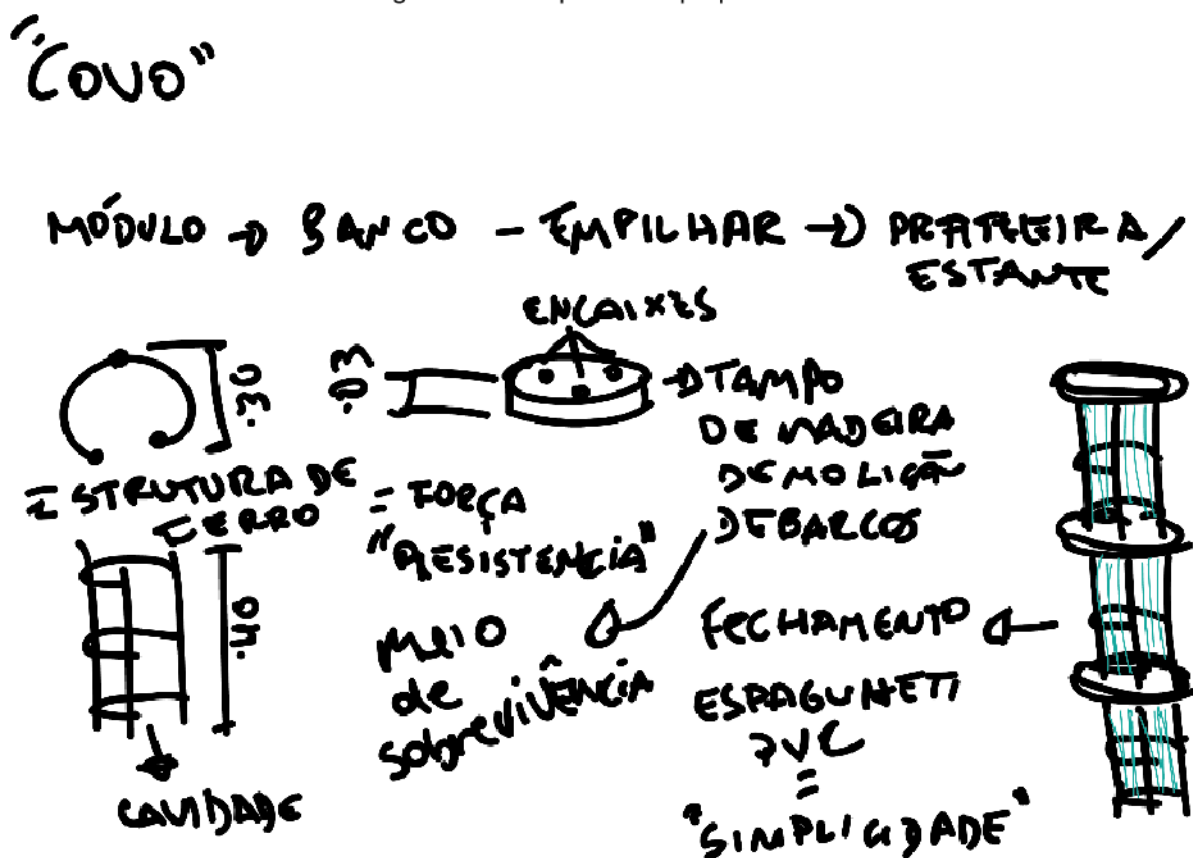 "COVO"
MÓDULO → BANCO - EMPILHAR → PRATELEIRA /
ESTANTE
ENCAIXES
.30
.03
→ TAMPO
DE MADEIRA
DEMOLIÇÃO
DE BARCOS
ESTRUTURA DE
FERRO
= FORÇA
"RESISTENCIA"
.40
MEIO
de
sobrevivÊNCIA
FECHAMENTO
ESPAGUNETI
PVC
=
"SIMPLICIDADE"
CAVIDADE